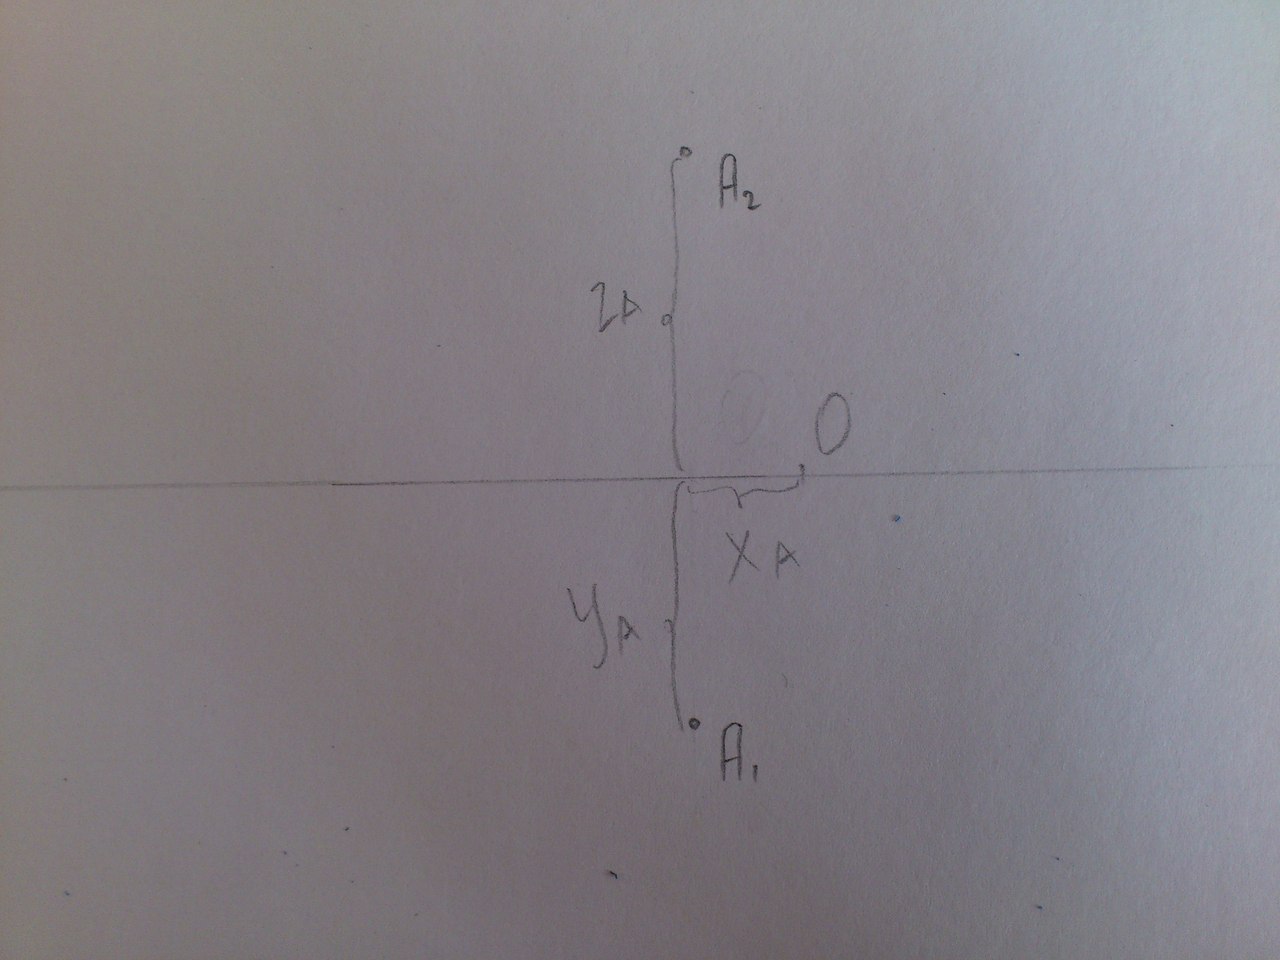 A₂
ZA
O
XA
yA
A₁